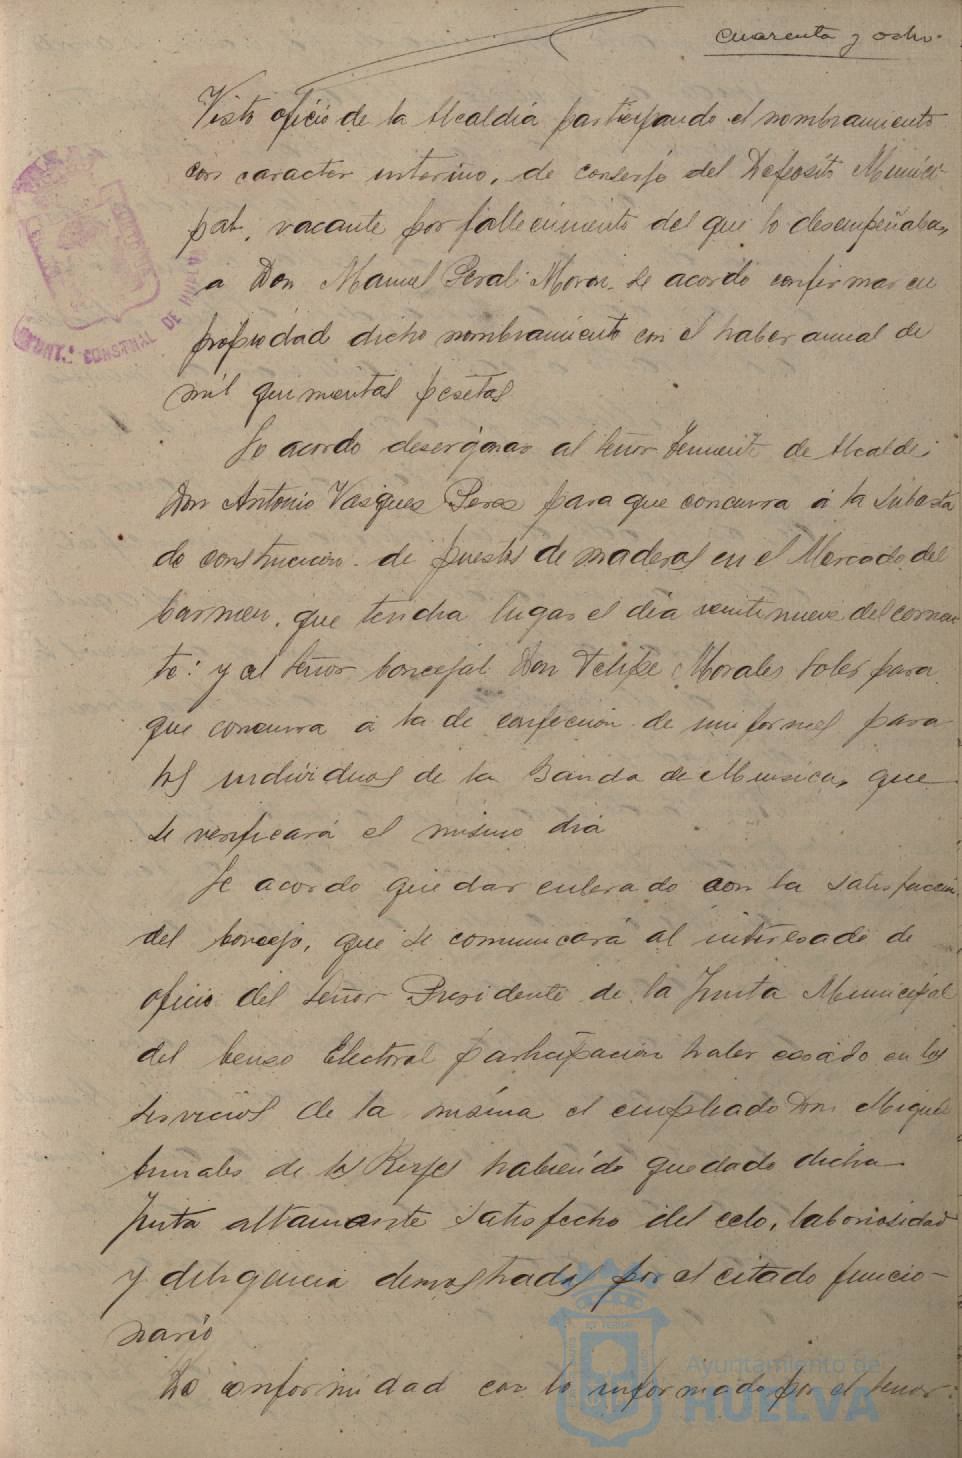 cuarenta y ocho.
Visto oficio de la Alcaldia participando el nombramiento
con caracter interino, de conserje del Deposito Munici-
pal, vacante por fallecimiento del que lo desempeñaba,
a Don Manuel Peral Moron se acordó confirmar en
propiedad dicho nombramiento con el haber anual de
mil quinientas pesetas
Se acordo designar al Señor Teniente de Alcalde
Don Antonio Vasques Peres para que concurra á la subasta
de construccion de puestos de maderas en el Mercado del
Carmen, que tendra lugar el dia veintinueve del corrien-
te: y al Señor Concejal Don Felipe Morales Soler para
que concurra á la de confeccion de uniformes para
los individuos de la Banda de Musica, que
se verificará el mismo dia
Se acordo quedar enterado con la satisfaccion
del Concejo, que se comunicará al interesado de
oficio del Señor Presidente de la Junta Municipal
del Censo Electoral participacion haber cesado en los
servicios de la misma el empleado Don Miguel
de los Reyes habiendo quedado dicha
Junta altamente satisfecho del celo, laboriosidad
y diligencia demostradas por el citado funcio-
nario
De conformidad con lo informado por el Señor
AYUNT.º CONST.NAL DE HUELVA
Ayuntamiento de
HUELVA